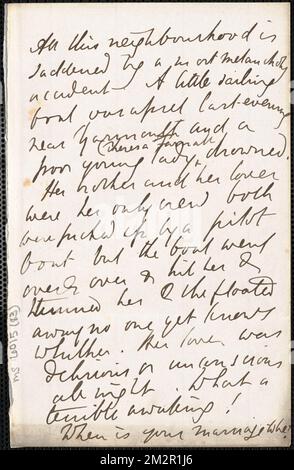 All this neighbourhood is
saddened by a most melancholy
accident. A little sailing
boat was upset last evening
near Yarmouth and a
(Theresa
poor young lady drowned.
Her mother and her lover
were her only crew both
were picked up by a pilot
boat but the boat went
over & over & hit her &
stunned her & she floated
away no one yet knows
whither. Her lover was
delirious or unconscious
all night. What a
terrible awaking!
When is your marriage
alamy
Image ID: 2M2R1J6
www.alamy.com